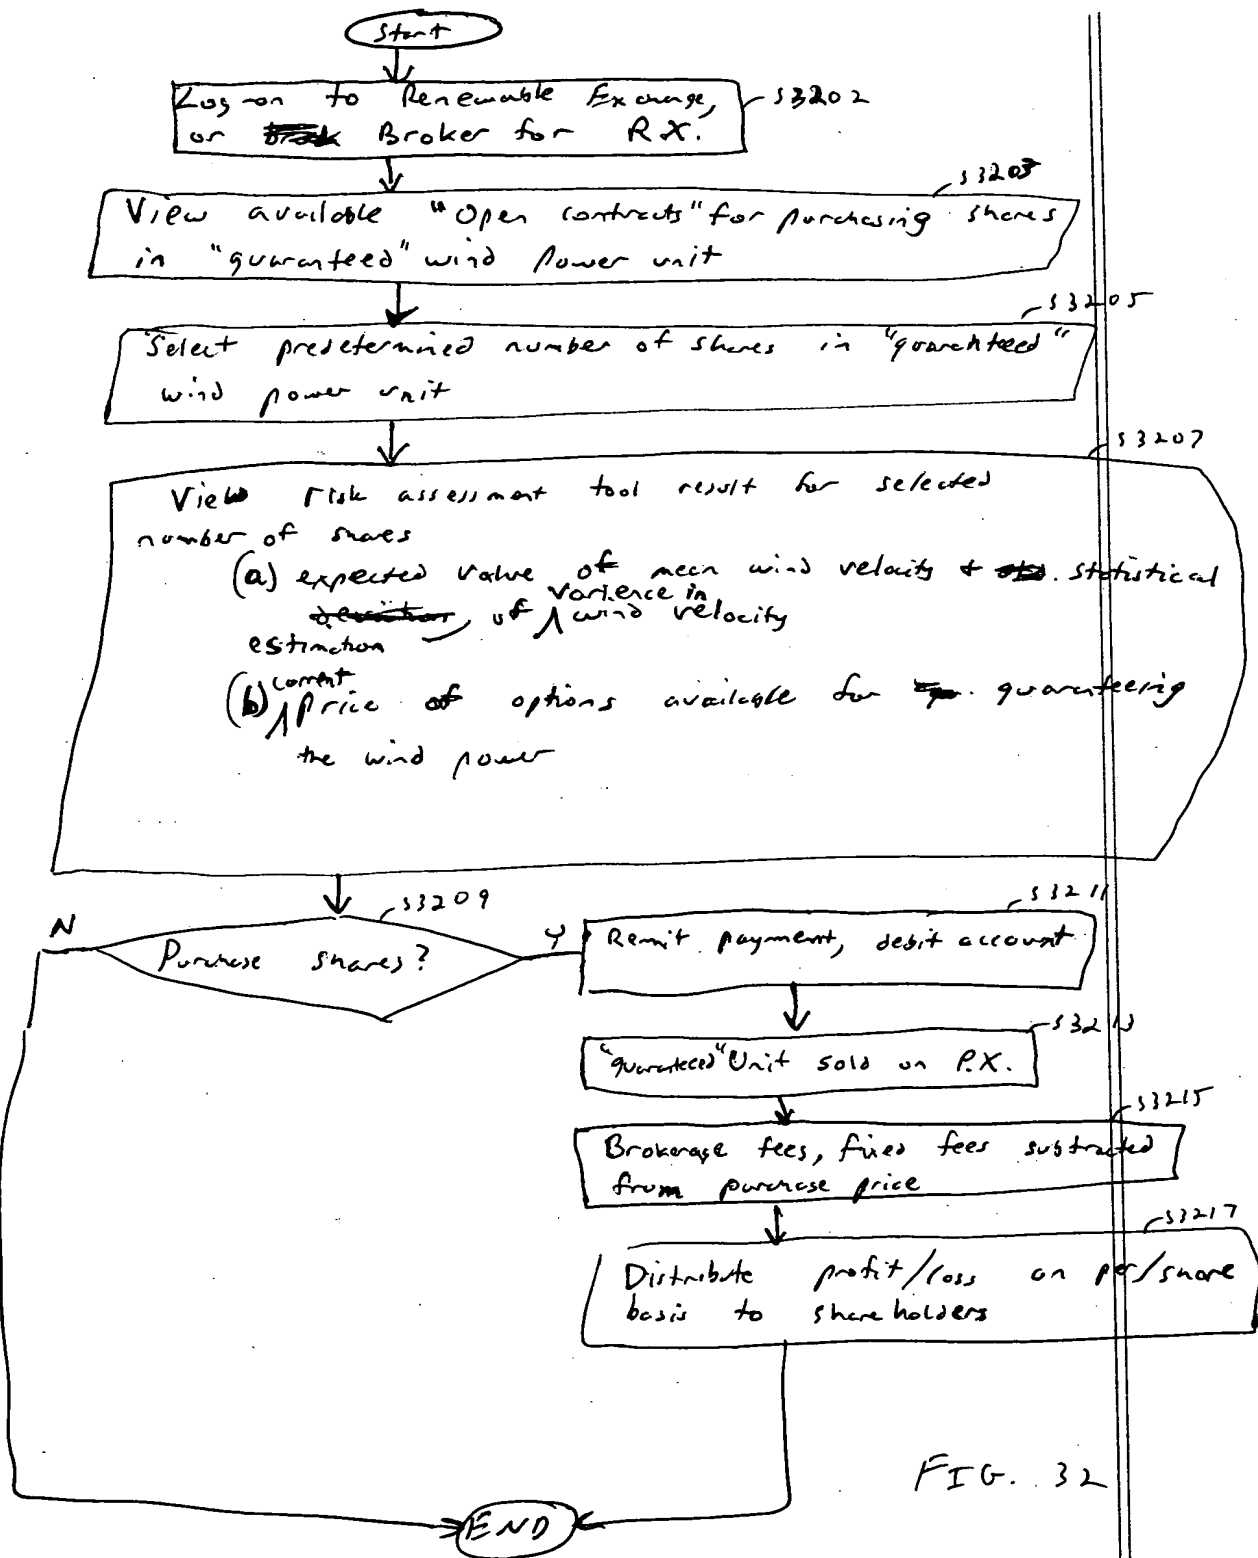 Start
Log-on to Renewable Exchange, S3202
or Broker for R.X.
S3203
View available "Open contracts" for purchasing shares
in "guaranteed" wind power unit
S3205
Select predetermined number of shares in "guaranteed"
wind power unit
S3207
View risk assessment tool result for selected
number of shares
(a) expected value of mean wind velocity & statistical
varience in
of wind velocity
estimation
current
(b) price of options available for guaranteeing
the wind power
S3209
N
Purchase shares?
Y
S3211
Remit payment, debit account
S3213
"guaranteed" Unit sold on P.X.
S3215
Brokerage fees, fixed fees subtracted
from purchase price
S3217
Distribute profit/loss on per/share
basis to shareholders
FIG. 32
END